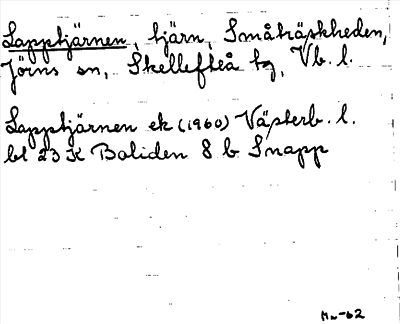 Lapptjärnen, tjärn, Småträskheden,
Jörns sn, Skellefteå tg, Vb. l.
Lapptjärnen ek (1960) Västerb. l.
bl 23 K Boliden 8 b Snapp
Mw-62